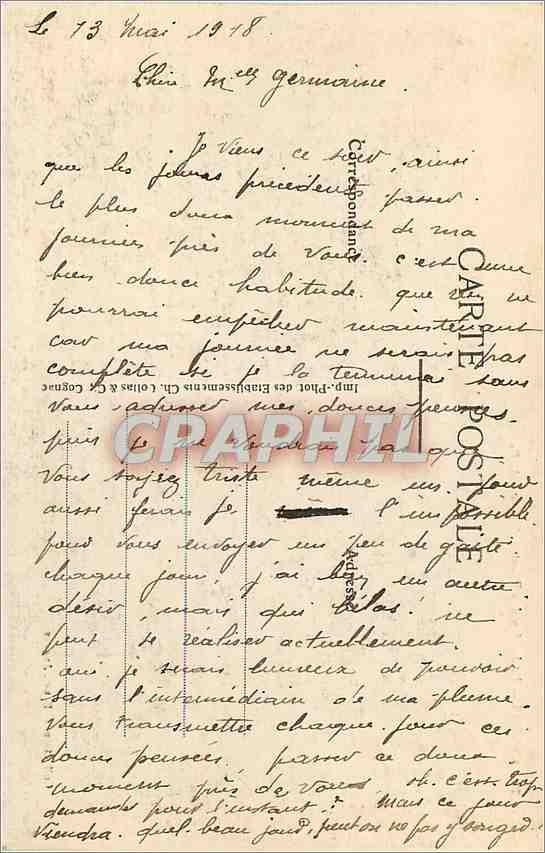 Le 13 Mai 1918.
Chère Melle Germaine.
Je viens ce soir, ainsi
que les jours précédents passer
le plus doux moment de ma
journée près de vous. c'est une
bien douce habitude. que rien ne
pourrai empêcher maintenant
car ma journée ne serais pas
complète si je la termine sans
vous adresser mes douces pensées.
puis je ne voudrai pas que
vous soyez triste même un jour
aussi ferais je l'impossible
pour vous envoyer un peu de gaité
chaque jour, j'ai bien un autre
désir, mais qui hélas! ne
peut se réaliser actuellement.
oui je serais heureux de pouvoir
sans l'intermédiaire de ma plume
vous transmettre chaque jour ces
douces pensées, passer ce doux
moment près de vous oh. c'est trop
demander pour l'instant? Mais ce jour
viendra. quel beau jour, peut on ne pas y songer.
Correspondance
CARTE POSTALE
Adresse
Imp.-Phot des Etablissements Ch. Collas & Cie Cognac
CPAPHIL